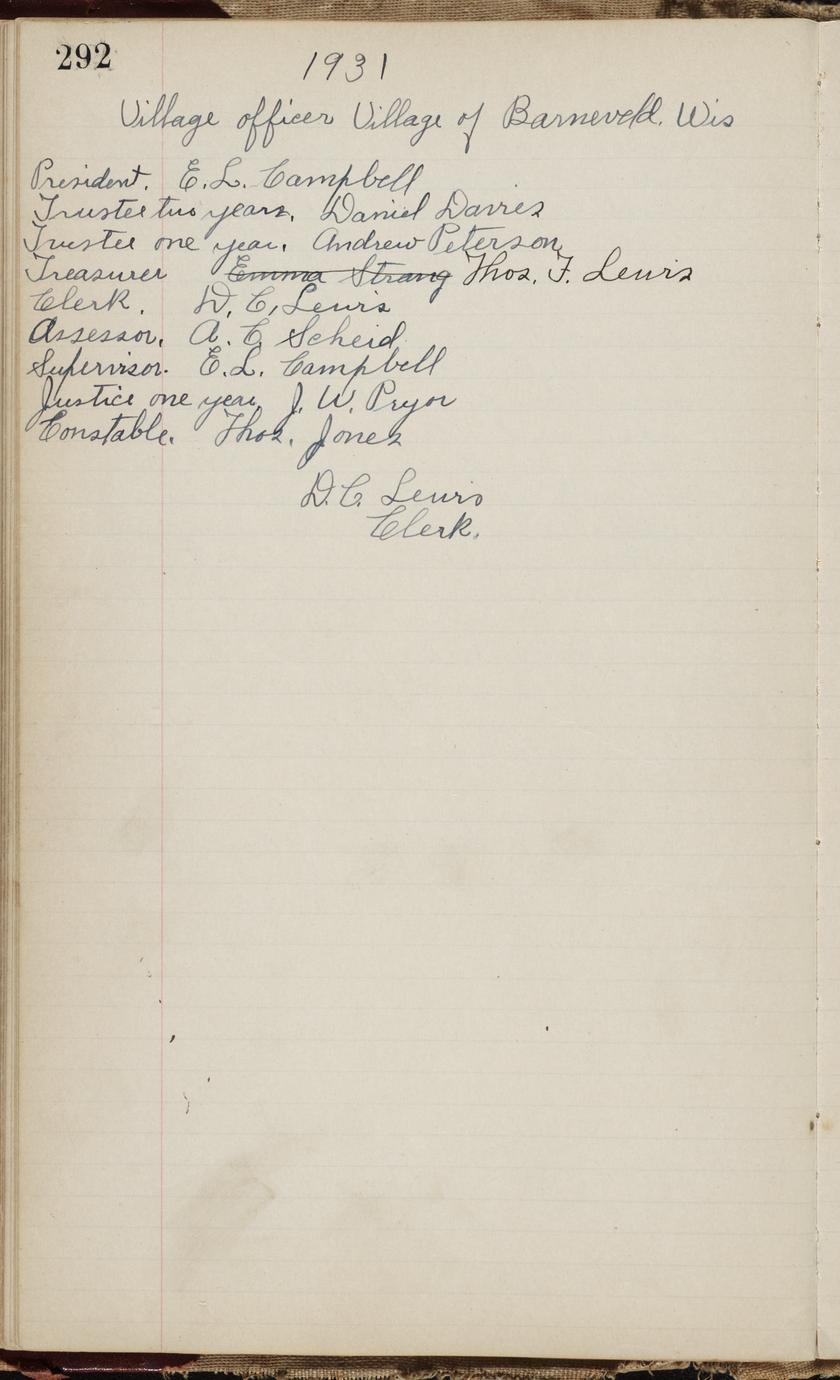 292
1931
Village officer Village of Barneveld. Wis
President. E. L. Campbell
Trustee two years. Daniel Davies
Trustee one year. Andrew Peterson
Treasurer Emma Strang Thos. F. Lewis
Clerk. D. C. Lewis
Assessor. A. C. Scheid
Supervisor. E. L. Campbell
Justice one year, J. W. Pryor
Constable. Thos. Jones
D. C. Lewis
Clerk.